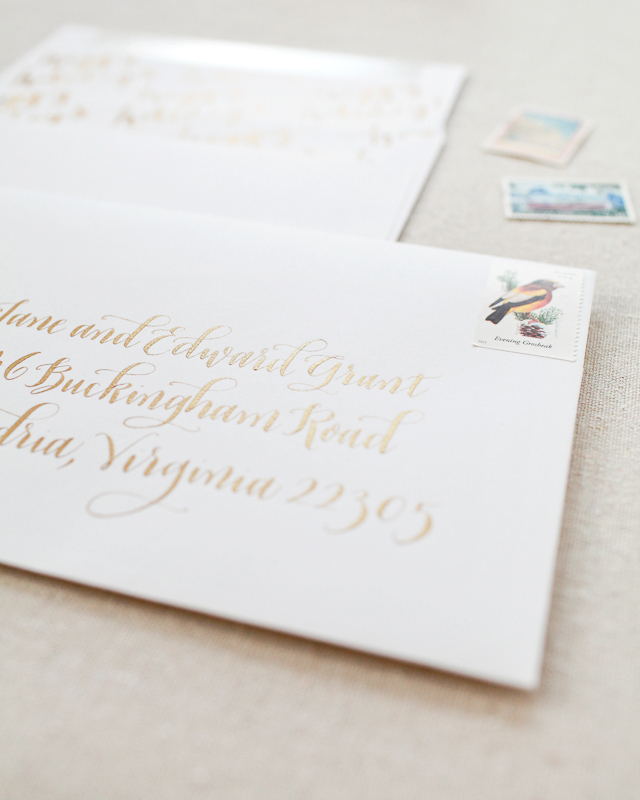 Jane and Edward Grant
6 Buckingham Road
dria, Virginia 22305
Evening Grosbeak